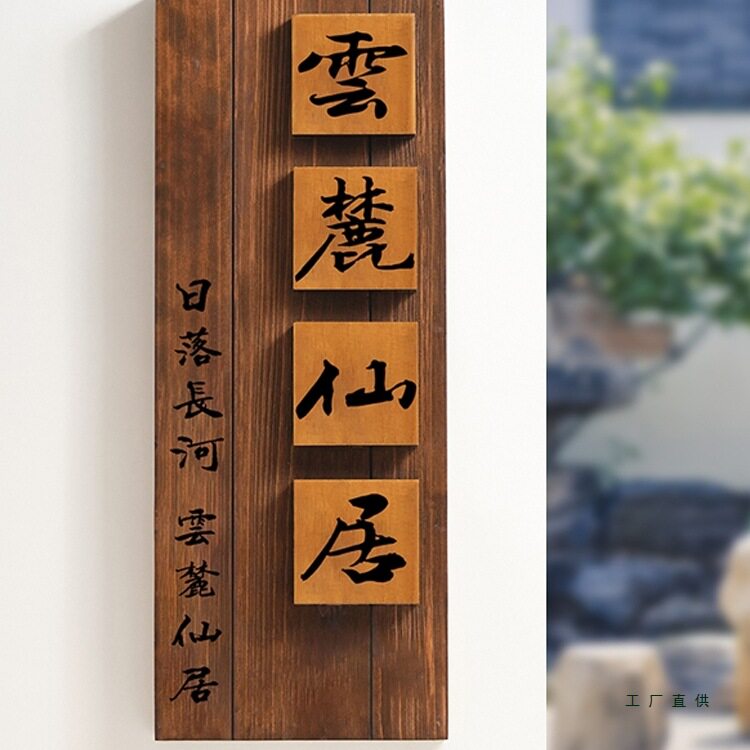 雲麓仙居
日落長河 雲麓仙居
工厂直供